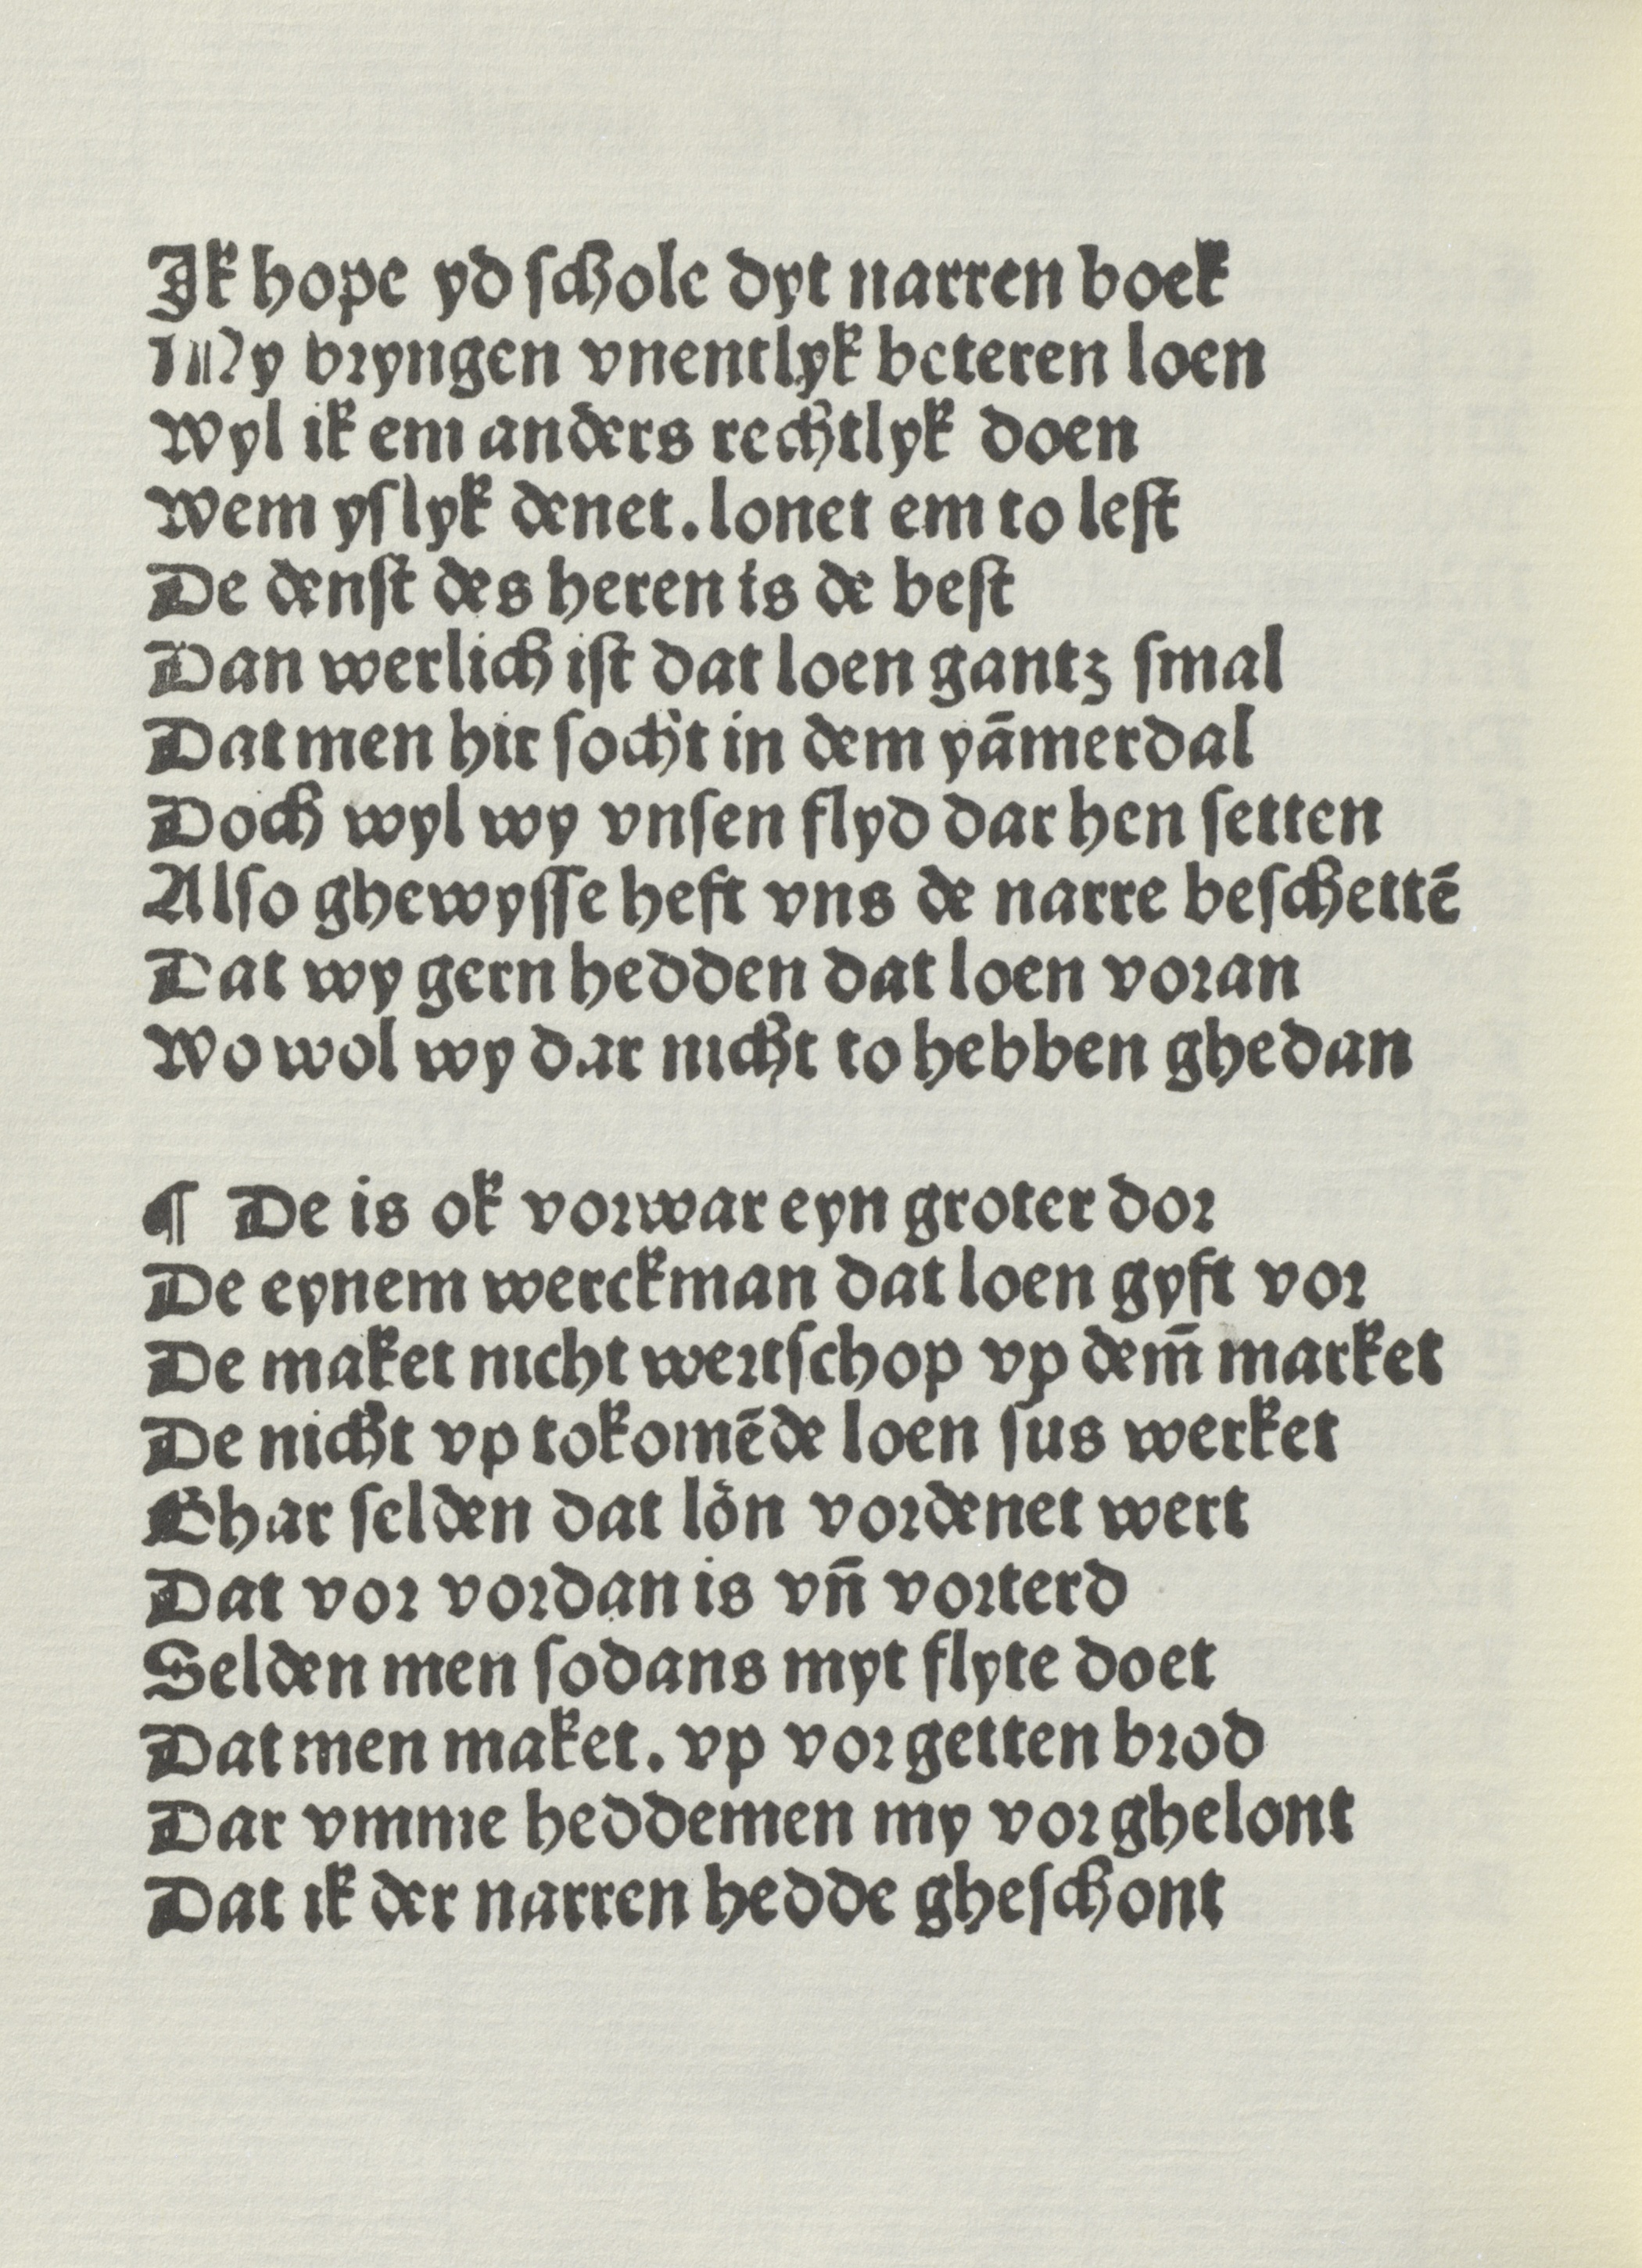 Ik hope yd ſchole dyt narren boek
My bryngen vnentlyk beteren loen
Wyl ik em anders rechtlyk doen
Wem yſlyk denet. lonet em to leſt
De denſt des heren is de beſt
Dan werlich iſt dat loen gantz ſmal
Dat men hir ſocht in dem yāmerdal
Doch wyl wy vnſen flyd dar hen ſetten
Alſo ghewyſſe heft vns de narre beſchettē
Dat wy gern hedden dat loen voran
Wo wol wy dar nicht to hebben ghedan
¶ De is ok vorwar eyn groter dor
De eynem werckman dat loen gyft vor
De maket nicht wertſchop vp dem̄ market
De nicht vp tokomēde loen ſus werket
Ghar ſelden dat loͤn vordenet wert
Dat vor vordan is vn̄ vorterd
Selden men ſodans myt flyte doet
Dat men maket. vp vorgetten brod
Dar vmme heddemen my vor ghelont
Dat ik der narren hedde gheſchont